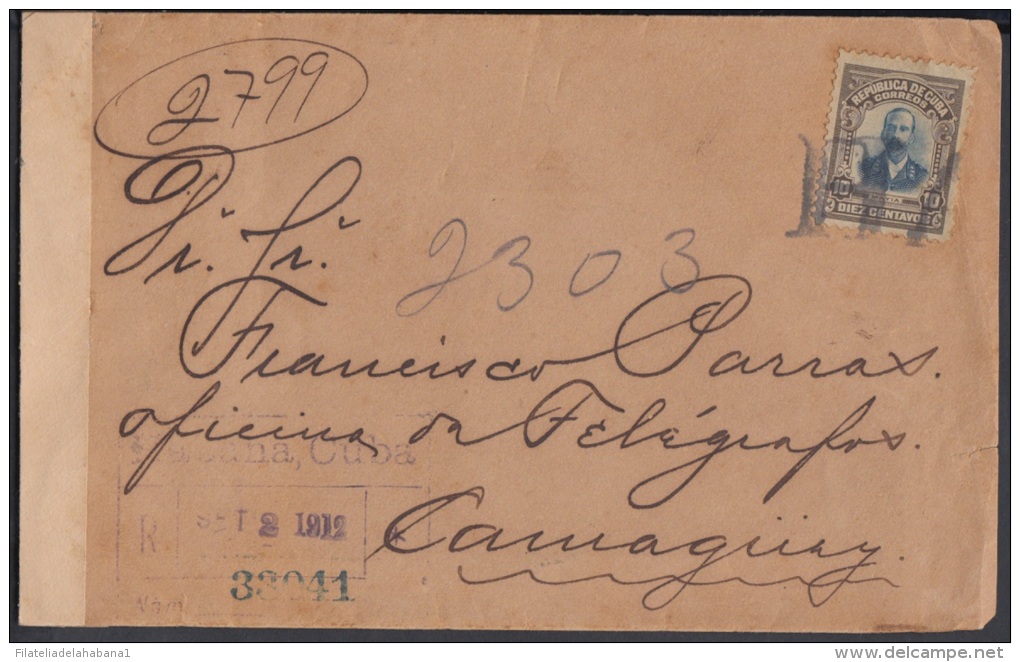 2799
REPUBLICA DE CUBA
CORREOS
10 10
DIEZ CENTAVOS
Sr. Sr.
2303
Francisco Parras.
oficina de Telégrafos.
Camagüey.
Habana, Cuba
R SET 2 1912
33041
Núm
Filateliadelahabana1
www.delcampe.net